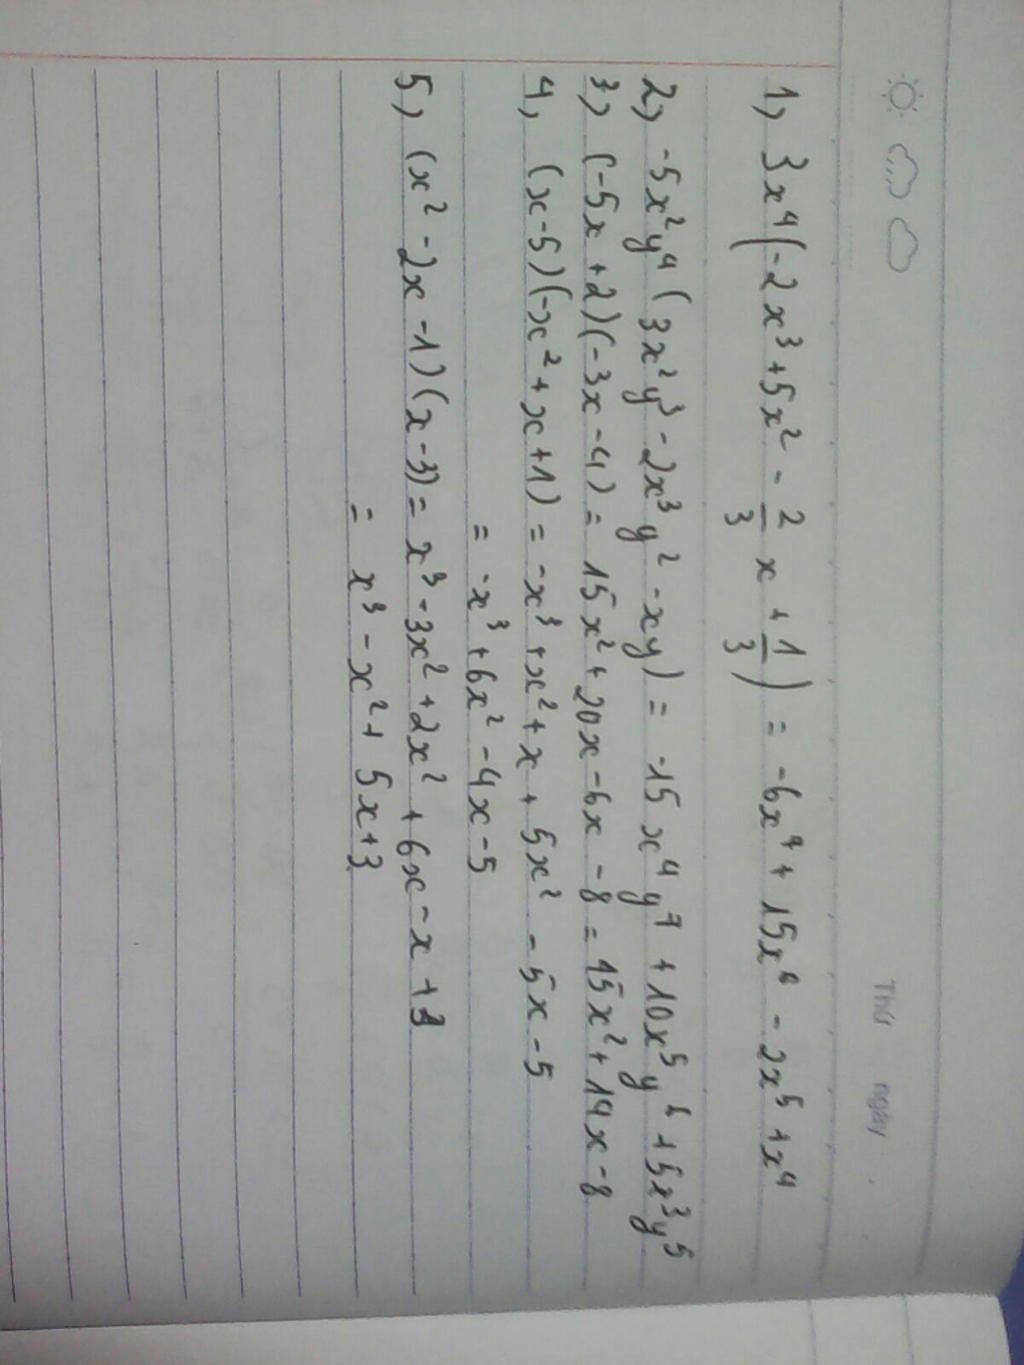 Thứ ngày
1, 3x⁴(-2x³+5x² - 2/3 x + 1/3) = -6x⁷ + 15x⁶ - 2x⁵ + x⁴
2, -5x²y⁴(3x²y³ - 2x³y² - xy) = -15x⁴y⁷ + 10x⁵y⁶ + 5x³y⁵
3, (-5x+2)(-3x-4) = 15x² + 20x - 6x - 8 = 15x² + 14x - 8
4, (x-5)(-x²+x+1) = -x³ + x² + x + 5x² - 5x - 5
= -x³ + 6x² - 4x - 5
5, (x² - 2x - 1)(x-3) = x³ - 3x² + 2x² + 6x - x + 3
= x³ - x² + 5x + 3